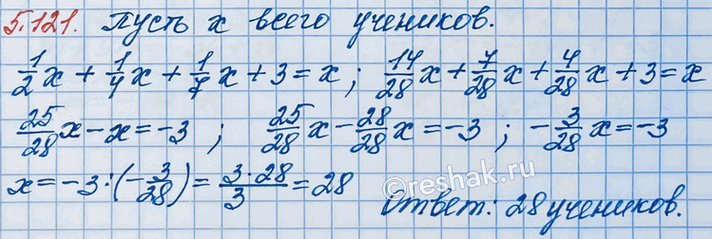 5.121. Пусть x всего учеников.
1/2 x + 1/4 x + 1/7 x + 3 = x ; 14/28 x + 7/28 x + 4/28 x + 3 = x
25/28 x - x = -3 ; 25/28 x - 28/28 x = -3 ; - 3/28 x = -3
x = -3 : (- 3/28) = 3·28/3 = 28
©reshak.ru
Ответ: 28 учеников.